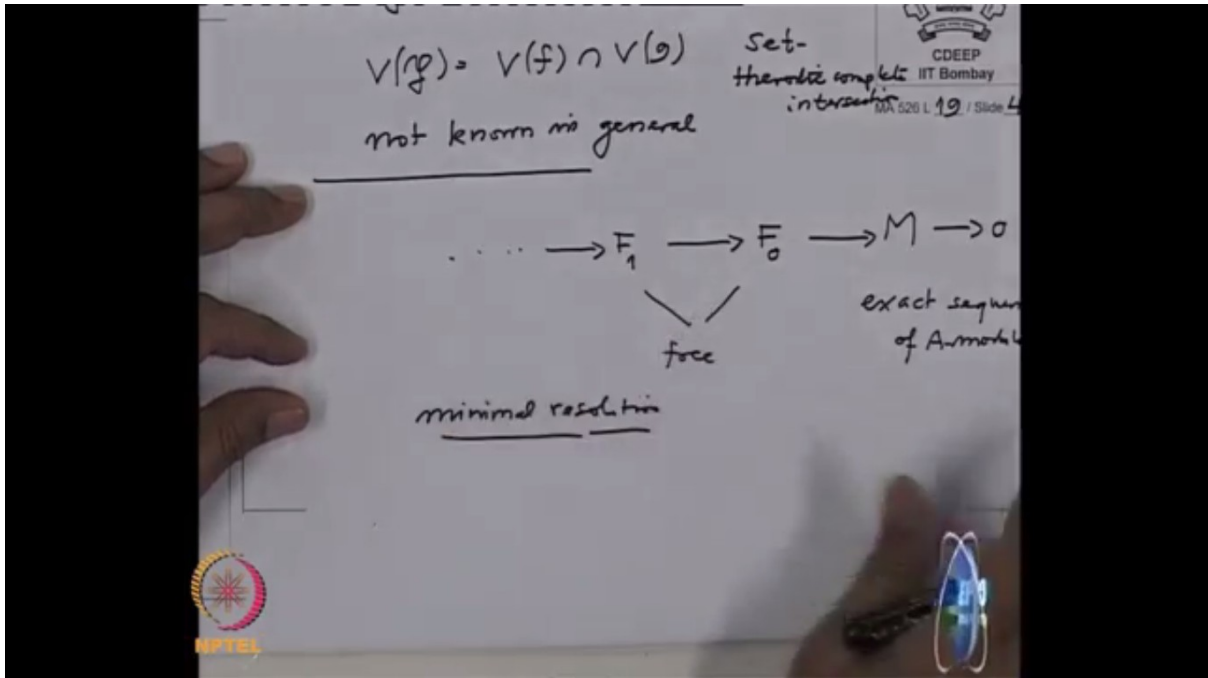 V(𝔭) = V(f) ∩ V(g)
set-
theroetic complete
intersection
CDEEP
IIT Bombay
MA 526 L 19 / Slide 4
not known in general
. . . . → F₁ → F₀ → M → 0
free
exact sequen
of A-modul
minimal resolution
NPTEL